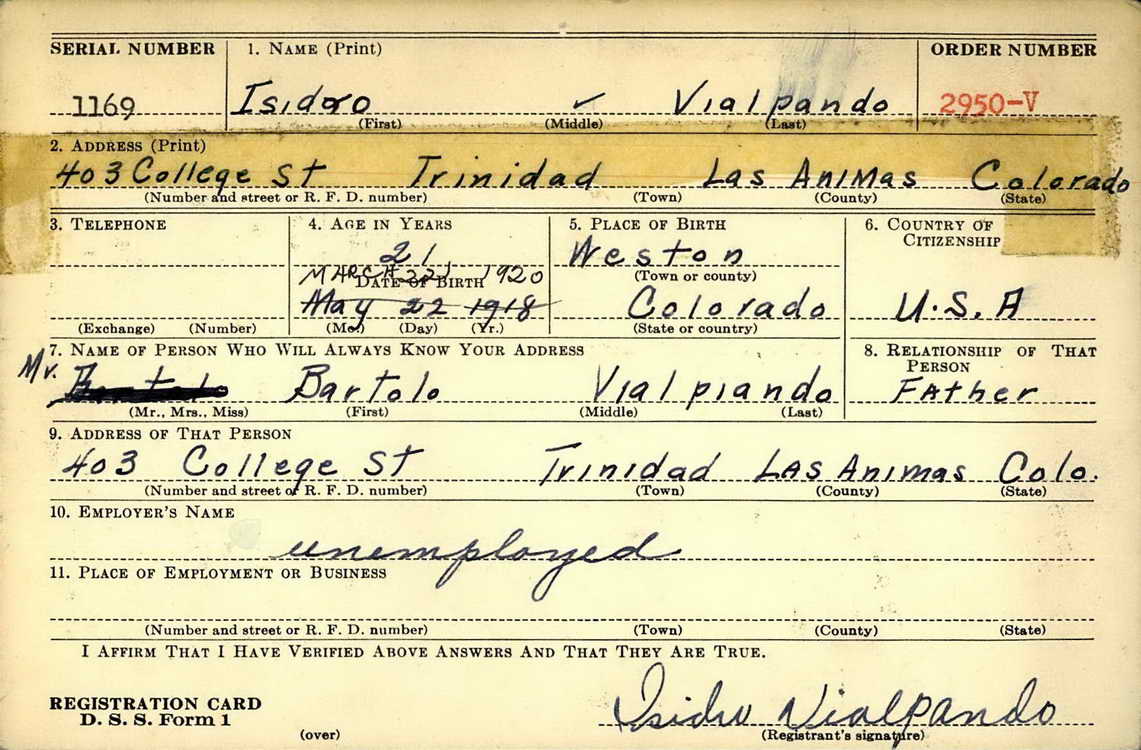 SERIAL NUMBER 1. NAME (Print) ORDER NUMBER
1169 Isidoro ✓ Vialpando 2950-V
(First) (Middle) (Last)
2. ADDRESS (Print)
403 College St Trinidad Las Animas Colorado
(Number and street or R. F. D. number) (Town) (County) (State)
3. TELEPHONE 4. AGE IN YEARS 5. PLACE OF BIRTH 6. COUNTRY OF CITIZENSHIP
21 Weston
MARCH 1920 (Town or county)
DATE OF BIRTH
May 22 1918 Colorado U.S.A
(Exchange) (Number) (Mo.) (Day) (Yr.) (State or country)
7. NAME OF PERSON WHO WILL ALWAYS KNOW YOUR ADDRESS 8. RELATIONSHIP OF THAT PERSON
Mr. Bartolo Bartolo Vialpiando Father
(Mr., Mrs., Miss) (First) (Middle) (Last)
9. ADDRESS OF THAT PERSON
403 College St Trinidad LAS Animas Colo.
(Number and street or R. F. D. number) (Town) (County) (State)
10. EMPLOYER'S NAME
unemployed
11. PLACE OF EMPLOYMENT OR BUSINESS
(Number and street or R. F. D. number) (Town) (County) (State)
I AFFIRM THAT I HAVE VERIFIED ABOVE ANSWERS AND THAT THEY ARE TRUE.
REGISTRATION CARD
D. S. S. Form 1 Isidro Vialpando
(over) (Registrant's signature)